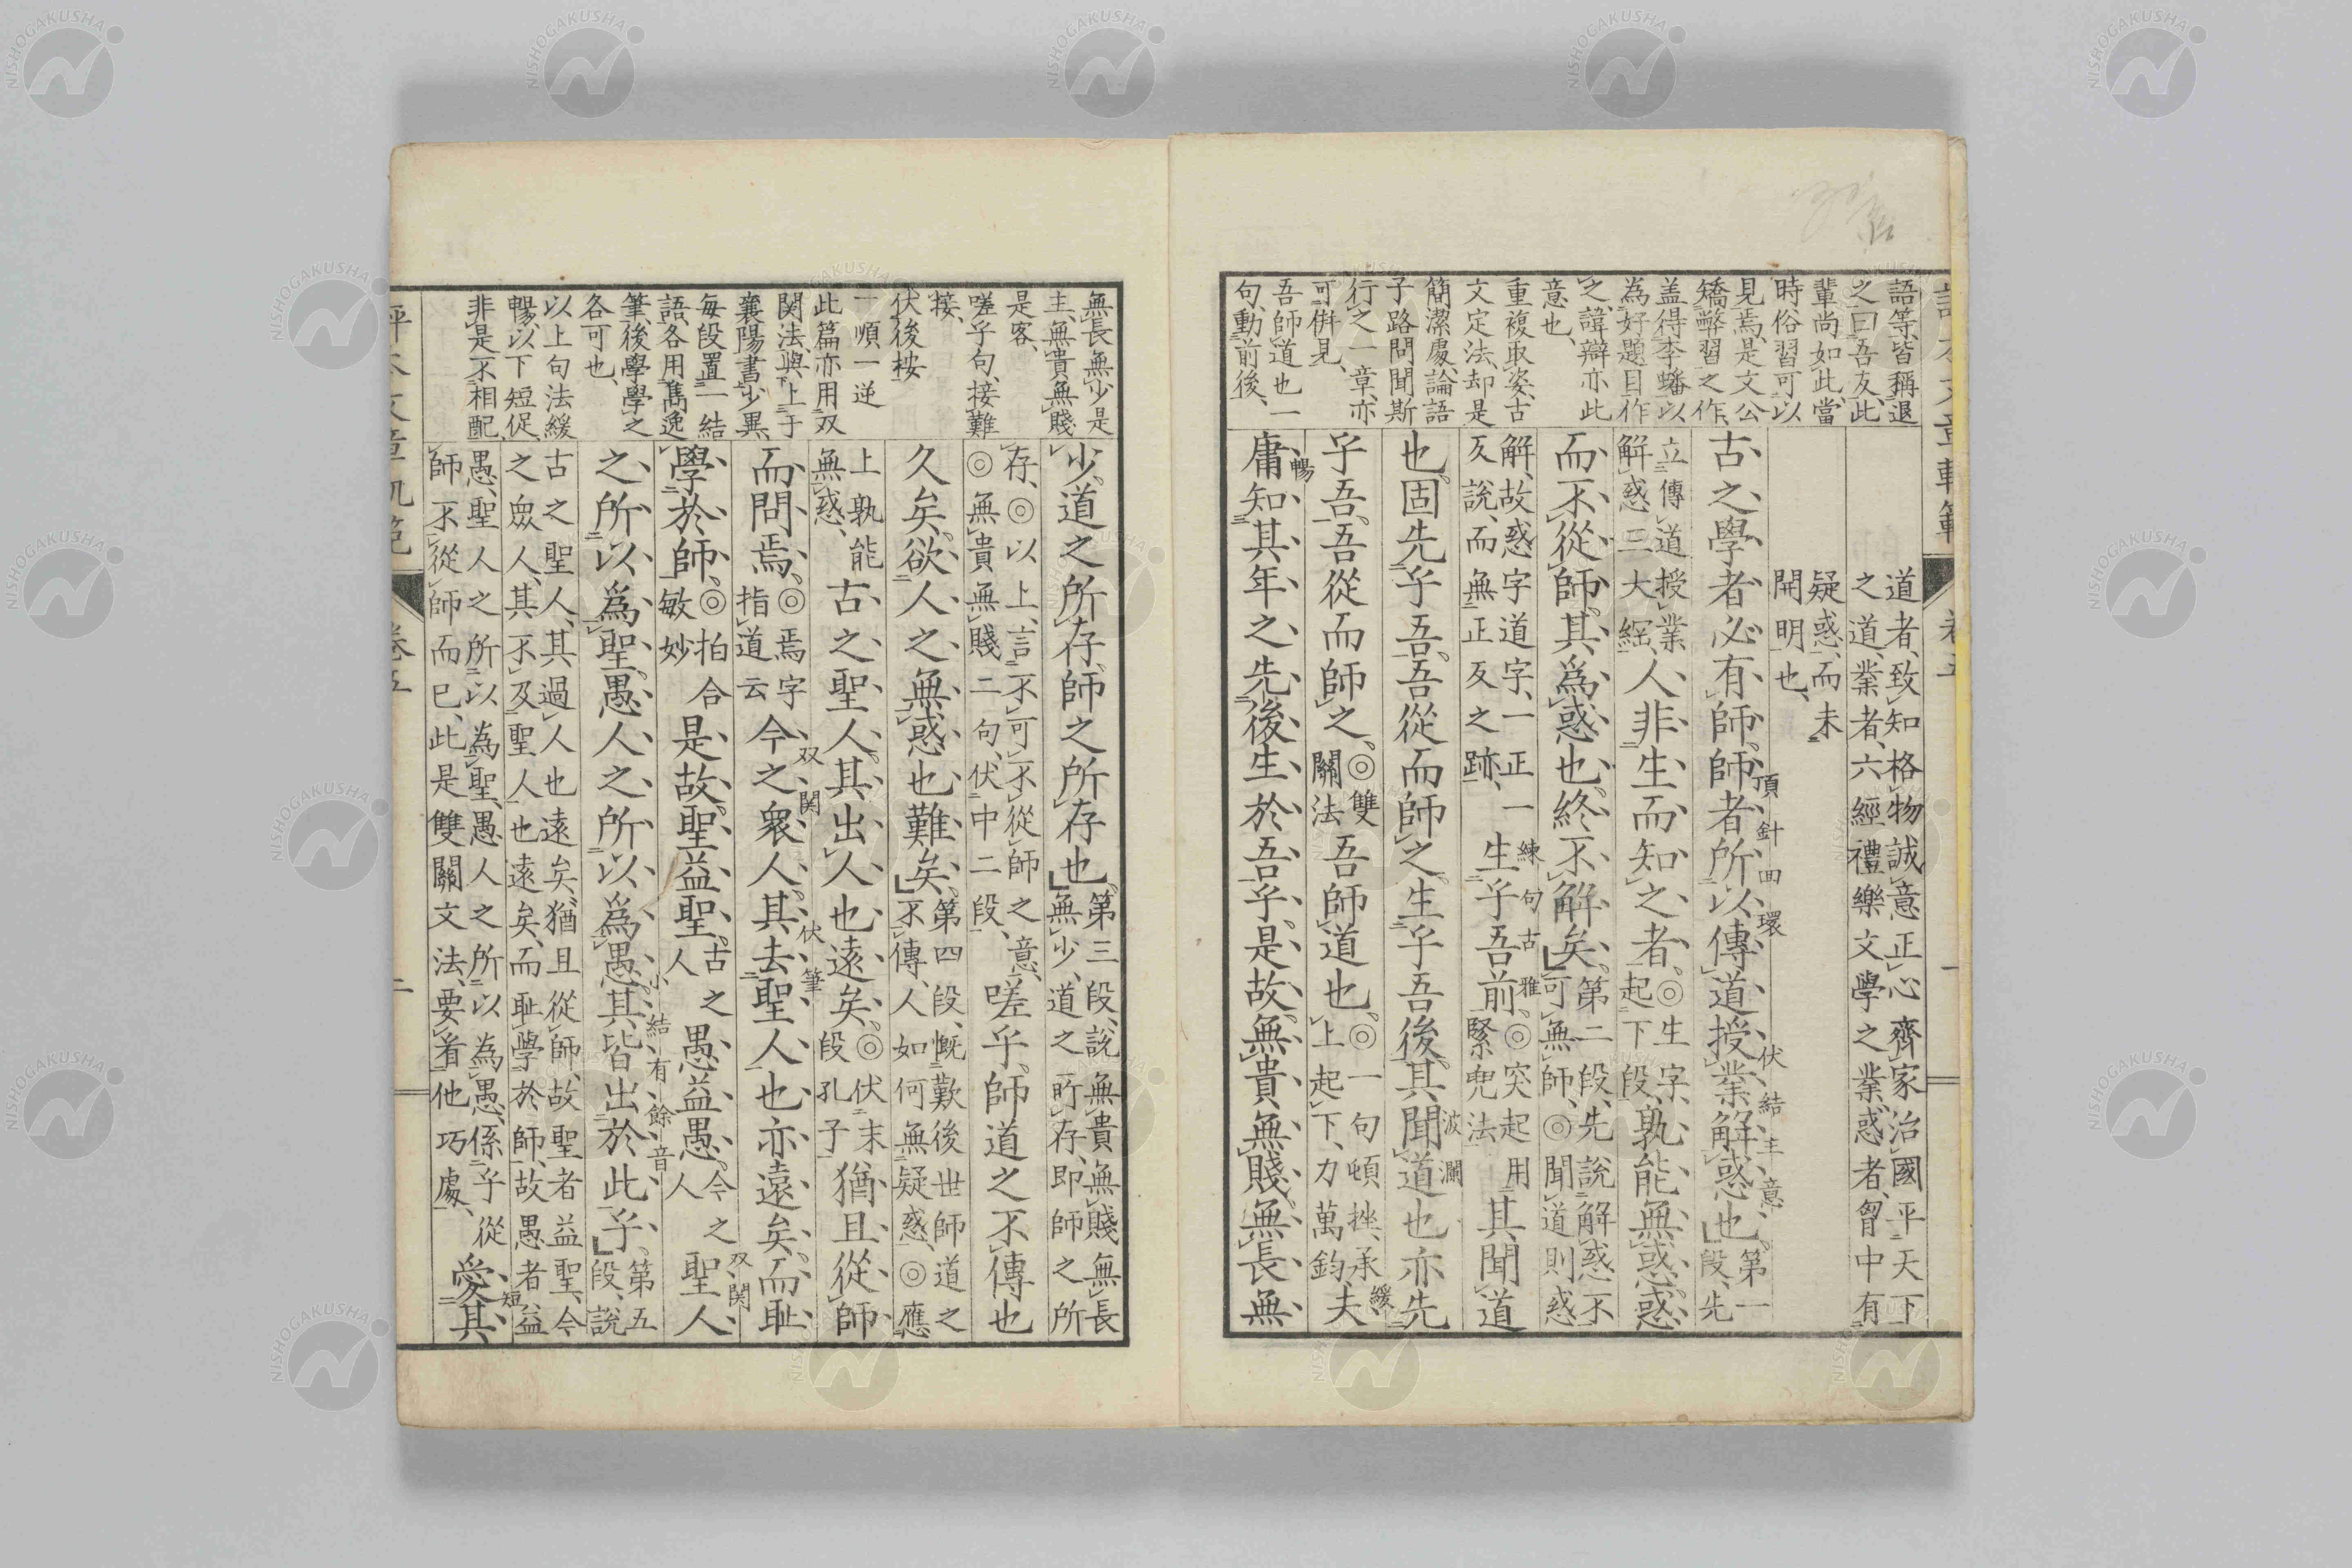 語等、皆稱退
之曰吾友、此
輩尚如此、當
時、俗習可以
見焉、是文公
矯弊習之作、
盖得李蟠以
為好題目作
之、諱辯亦此
意也、
重複取姿、古
文定法、却是
簡潔處、論語
子路問聞斯
行之一章、亦
可併見、
吾師道也一
句、動前後、
道者、致知格物誠意正心齊家治國平天下
之道、業者、六經禮樂文學之業、惑者、胷中有
疑惑、而未
開明也、
古之學者必有師、師者所以傳道授業解惑也。第一
段、先
頂針回環
伏結主意
立傳道授業
解惑三大綱、人非生而知之者、◎生字、
起下段、孰能無惑、惑
而不從師、其為惑也、終不解矣。第二段、先說解惑、不
可無師、◎聞道則惑
解、故惑字道字、一正一
反說、而無正反之跡、生乎吾前、◎突起用
緊兜法、其聞道
練句古雅
也、固先乎吾、吾從而師之、生乎吾後、其聞道也亦先
波瀾
乎吾、吾從而師之、◎雙
關法吾師道也、◎一句頓挫、承
上起下、力萬鈞、夫
緩
暢
庸知其年之先後生於吾乎、是故無貴無賤無長無
無長無少是
主、無貴無賤
是客、
嗟乎句、接難
接、
伏後桉
一順一逆
此篇亦用双
関法、與上于
襄陽書少異、
每段置一結
語、各用雋逸
筆、後學學之
各可也、
以上句法緩
暢、以下短促、
非是不相配、
少。道之所存、師之所存也。第三段、說無貴無賤無長
無少、道之所存、即師之所
存、◎以上、言不可不從師之意、
◎無貴無賤二句、伏中二段、嗟乎、師道之不傳也
久矣。欲人之無惑也難矣。第四段、慨歎後世師道之
不傳、人如何無疑惑、◎應
上孰能
無惑、古之聖人、其出人也遠矣。◎伏末
段孔子猶且從師
而問焉、◎焉字
指道云今之衆人、其去聖人也亦遠矣、而恥
双関
伏筆
學於師、◎拍合
敏妙是故聖益聖。古之
人愚益愚。今之
人聖人
双関
之所以為聖、愚人之所以為愚、其皆出於此乎。第五
段、說
小結有餘音
古之聖人、其過人也遠矣、猶且從師、故聖者益聖、今
之眾人、其不及聖人也遠矣、而恥學於師、故愚者益
愚、聖人之所以為聖、愚人之所以為愚、係乎從
師不從師而已、此是雙關文法、要看他巧處、愛其
短
卷五
二